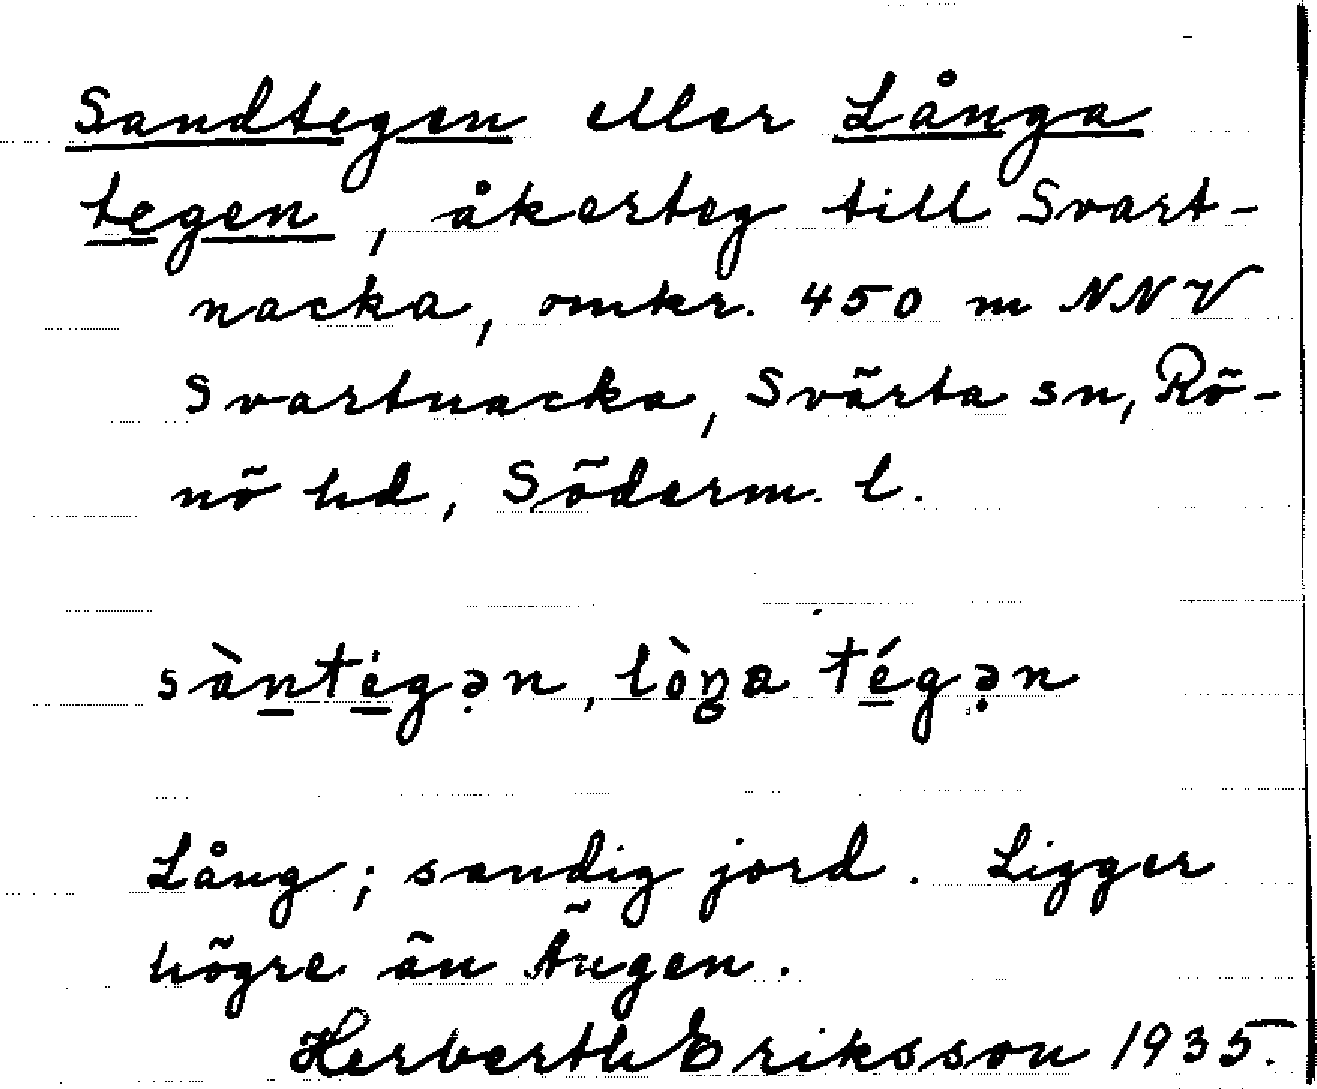 Sandtegen eller Långa
tegen, åkerteg till Svart-
nacka, omkr. 450 m NNV
Svartnacka, Svärta sn, Rö-
nö hd, Söderm. l.
sàntégə̣n, lòŋa tégə̣n
Lång; sandig jord. Ligger
högre än Ängen.
Herberth Eriksson 1935.